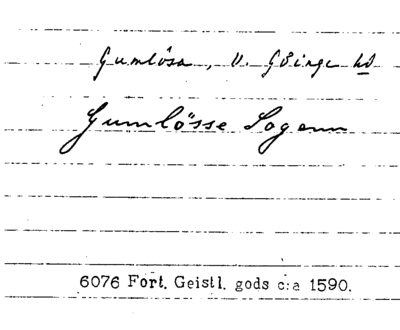 Gumlösa, V. Göinge hd
Gumlösse Sogenn
6076 Fort. Geistl. gods c:a 1590.